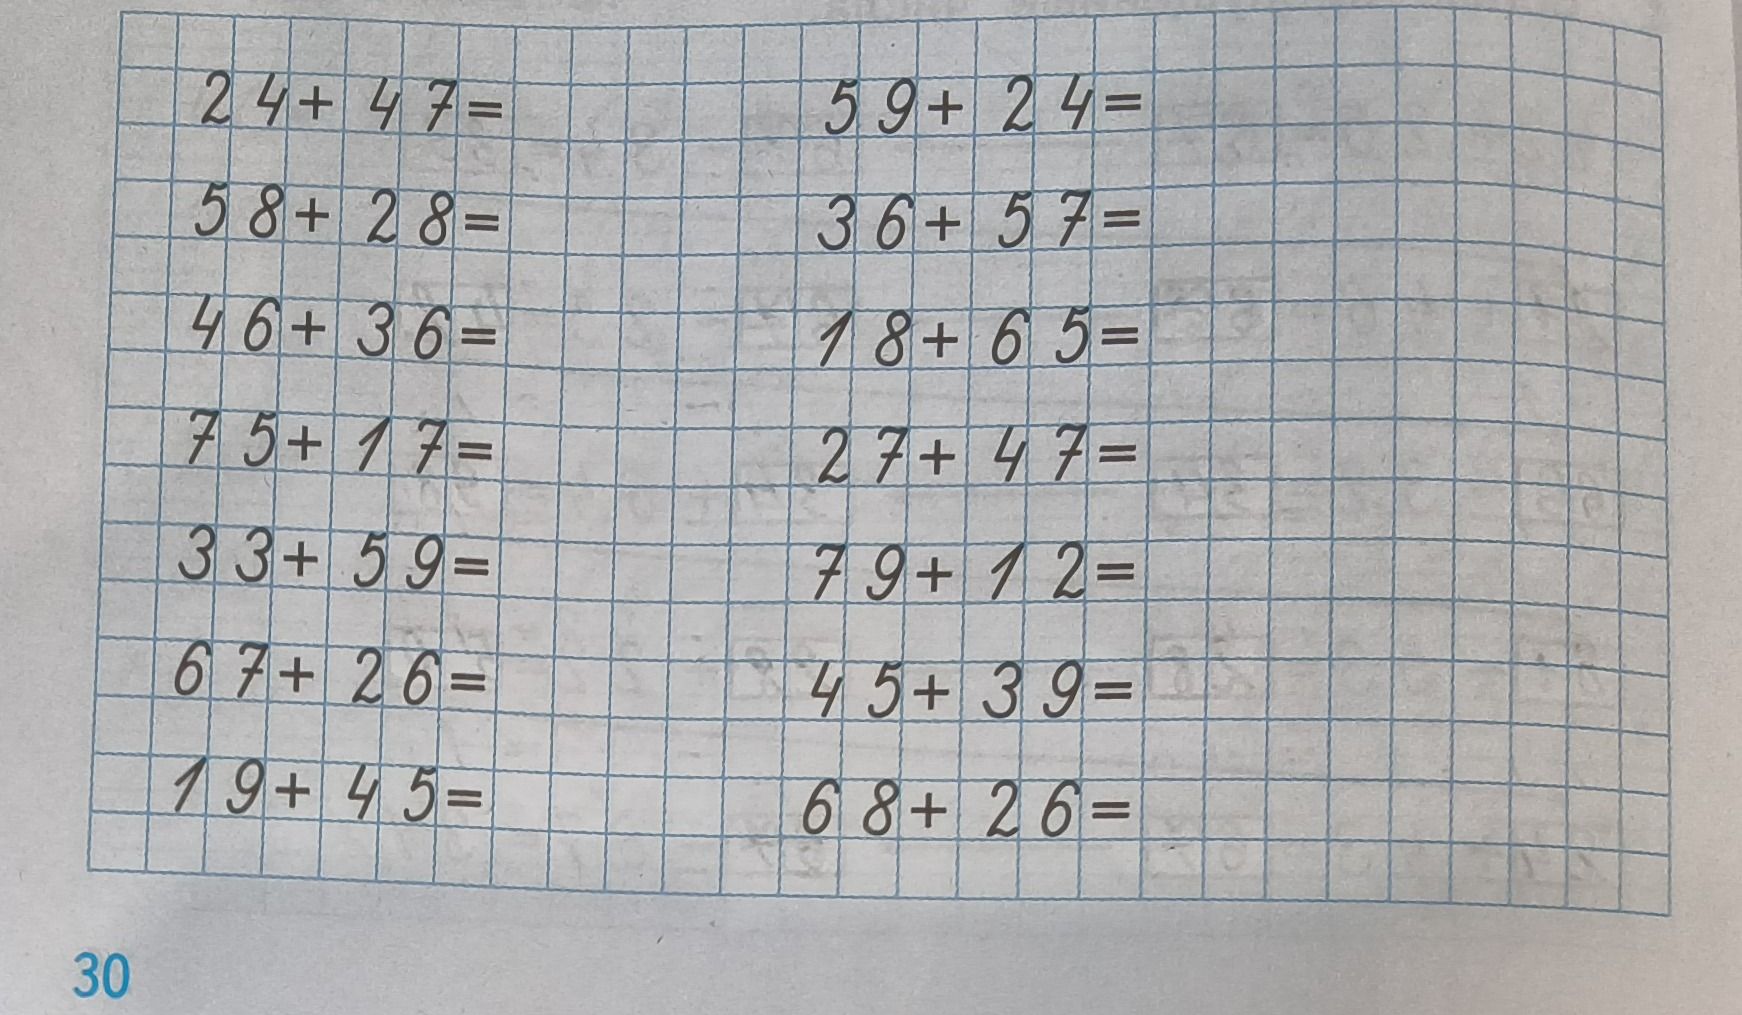 24+47= 59+24=
58+28= 36+57=
46+36= 18+65=
75+17= 27+47=
33+59= 79+12=
67+26= 45+39=
19+45= 68+26=
30